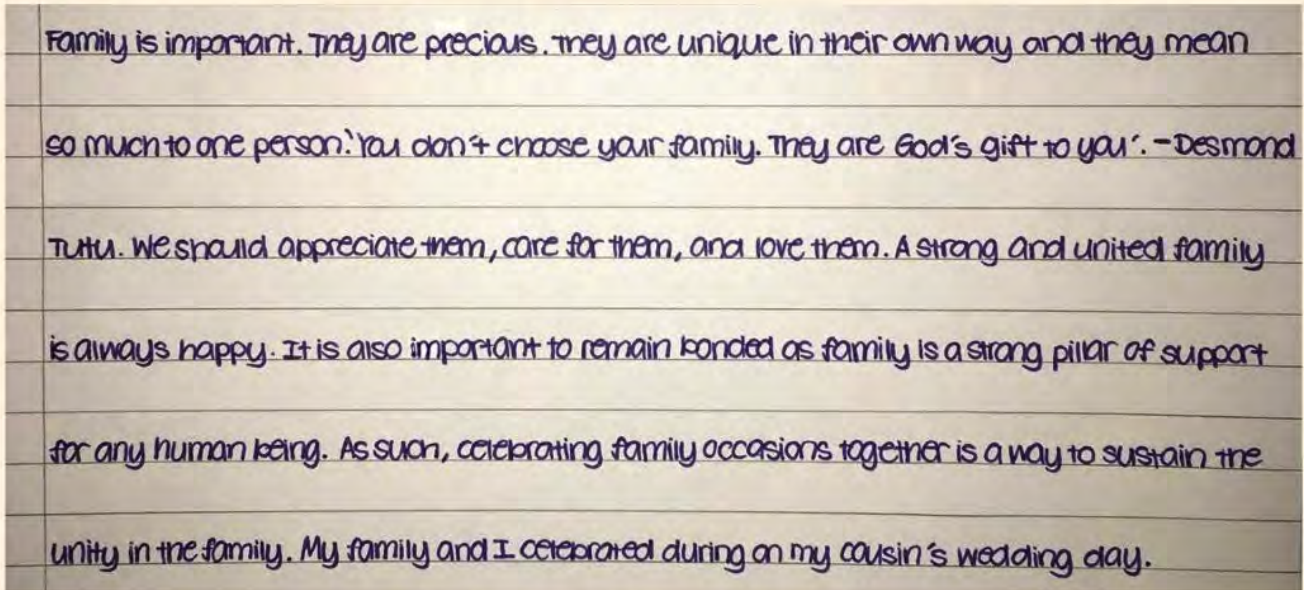 Family is important. They are precious. They are unique in their own way and they mean
so much to one person. 'You don't choose your family. They are God's gift to you'. - Desmond
Tutu. We should appreciate them, care for them, and love them. A strong and united family
is always happy. It is also important to remain bonded as family is a strong pillar of support
for any human being. As such, celebrating family occasions together is a way to sustain the
unity in the family. My family and I celebrated during on my cousin's wedding day.